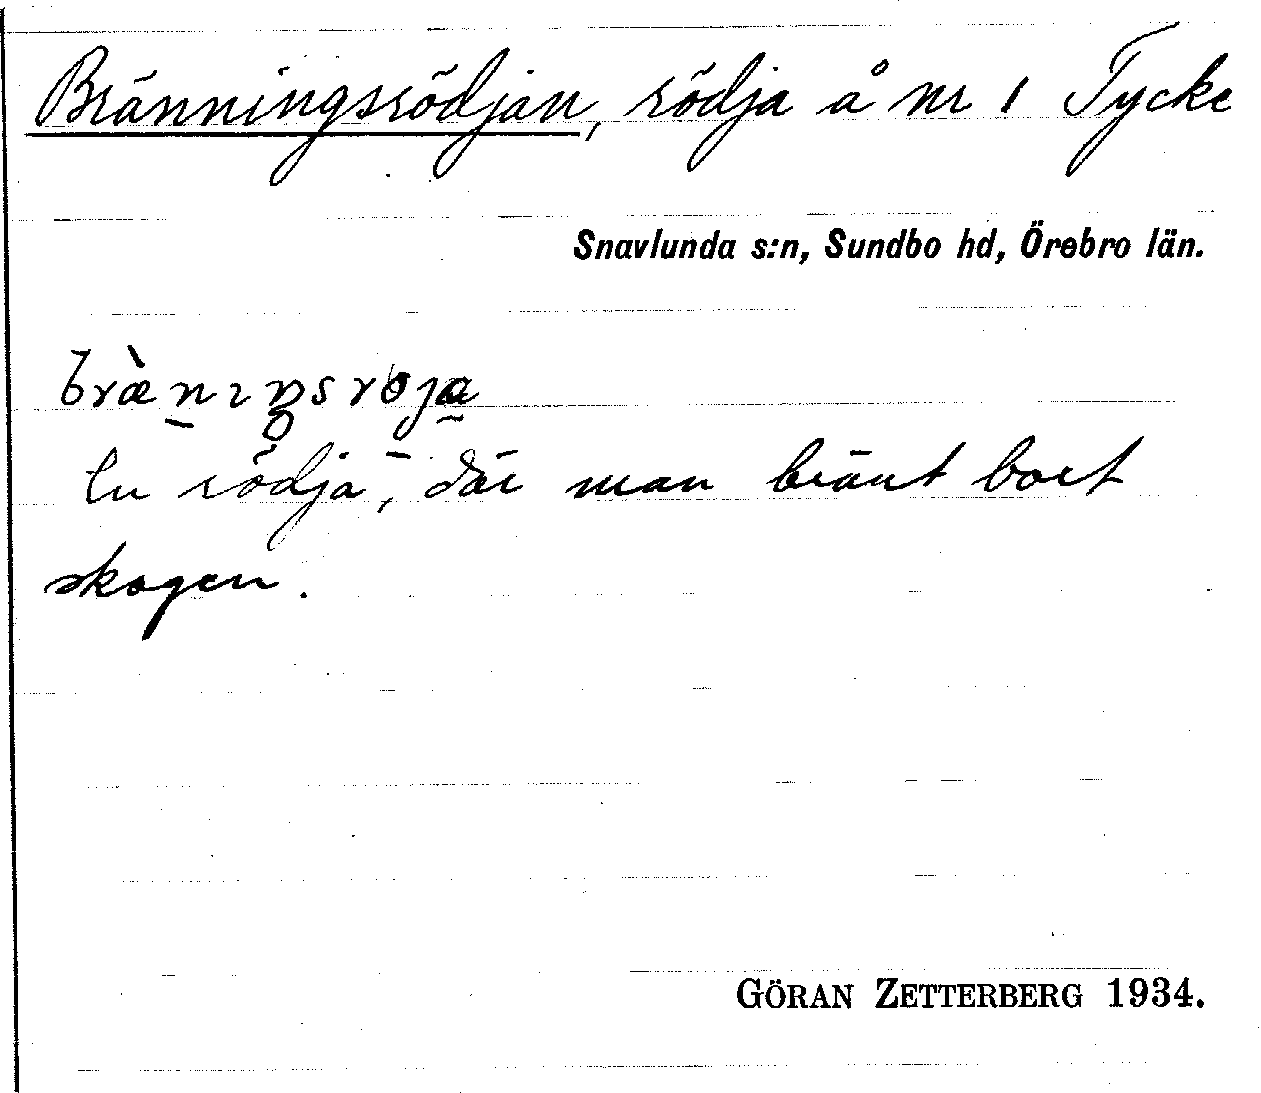 Bränningsrödjan, rödja å nr 1 Tycke
Snavlunda s:n, Sundbo hd, Örebro län.
bræ̀nıŋsrөja
En rödja, där man bränt bort
skogen.
GÖRAN ZETTERBERG 1934.